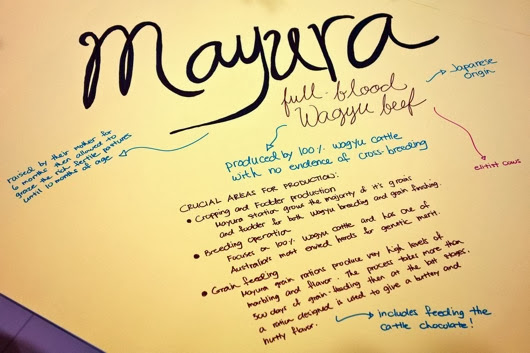 Mayura
full-blood
Wagyu beef
Japanese
Origin
raised by their mother for
6 months then allowed to
graze the rich fertile pastures
until 10 months of age
produced by 100% wagyu cattle
with no evidence of cross-breeding
CRUCIAL AREAS FOR PRODUCTION:
• Cropping and Fodder production
Mayura station grows the majority of it's grains
and fodder for both wagyu breeding and grain feeding.
• Breeding operation
Focuses on 100% wagyu cattle and has one of
Australia's most envied herds for genetic merit.
• Grain feeding
Mayura grain rations produce very high levels of
marbling and flavor. The process takes more than
300 days of grain-feeding then at the last stages,
a ration designed is used to give a buttery and
nutty flavor.
includes feeding the
cattle chocolate!
cows